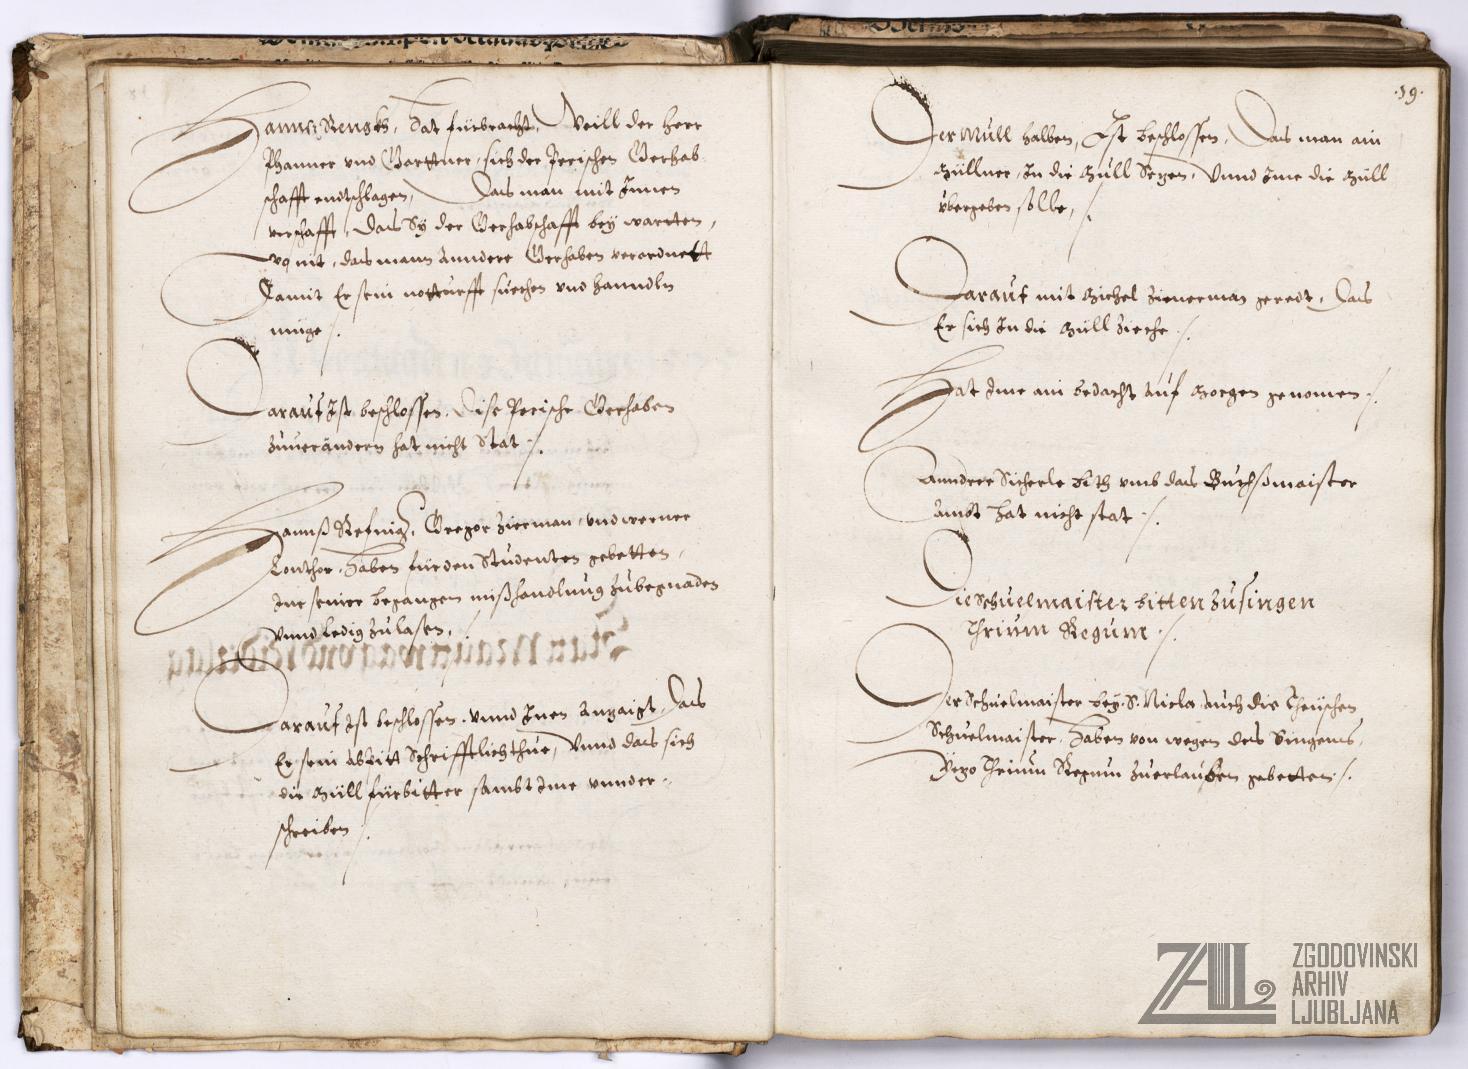 Hanns Rensch, Hat fürbracht, Weill der herr
Phanner vnd Garttner, sich der Perischen Gerhab-
schafft endtschlagen, Das man mit Innen
verschafft, Das Sy der Gerhabschafft bey wartten,
wo nit, das mann Anndere Gerhaben verordnett
Damit Er sein notturfft suechen vnd hanndln
müge ./.
Darauf Ist beschlossen, Dise Perische Gerhaben
zuuerändern hat nicht Stat ./.
Hannß Gregor Zierman, vnd werner
haben für den Studenten gebetten,
Ime seiner begangen mißhandlung zubegnaden
Vnnd ledig zulasen,
Darauf Ist beschlossen, vnnd Inen Anzaigt, Das
Er sein Abbitt Schrifftlich thue, Vnnd das sich
die Müll fürbitter sambt Ime vnnder-
schreiben ./.
.19.
Der Müll halben, Ist beschlossen, Das man ain
Müllner, In die Müll Setzen, Vnnd Ime die Müll
vbergeben solle,
Darauf mit Michel Zimerman geredt, Das
Er sich In die Müll Zieche ./.
Hat Ime ain bedacht Auf Morgen genomen ./.
Anndree Sicherle bith vmb das Buchßmaister
Ambt hat nicht stat ./.
Die Schuelmaister bitten zusingen
Trium Regum ./.
Der Schuelmaister bey S. Nicla Auch die Theüschen
Schuelmaister, haben von wegen des Singens,
Trium Regum zuerlauben gebetten ./.
ZAL
ZGODOVINSKI
ARHIV
LJUBLJANA